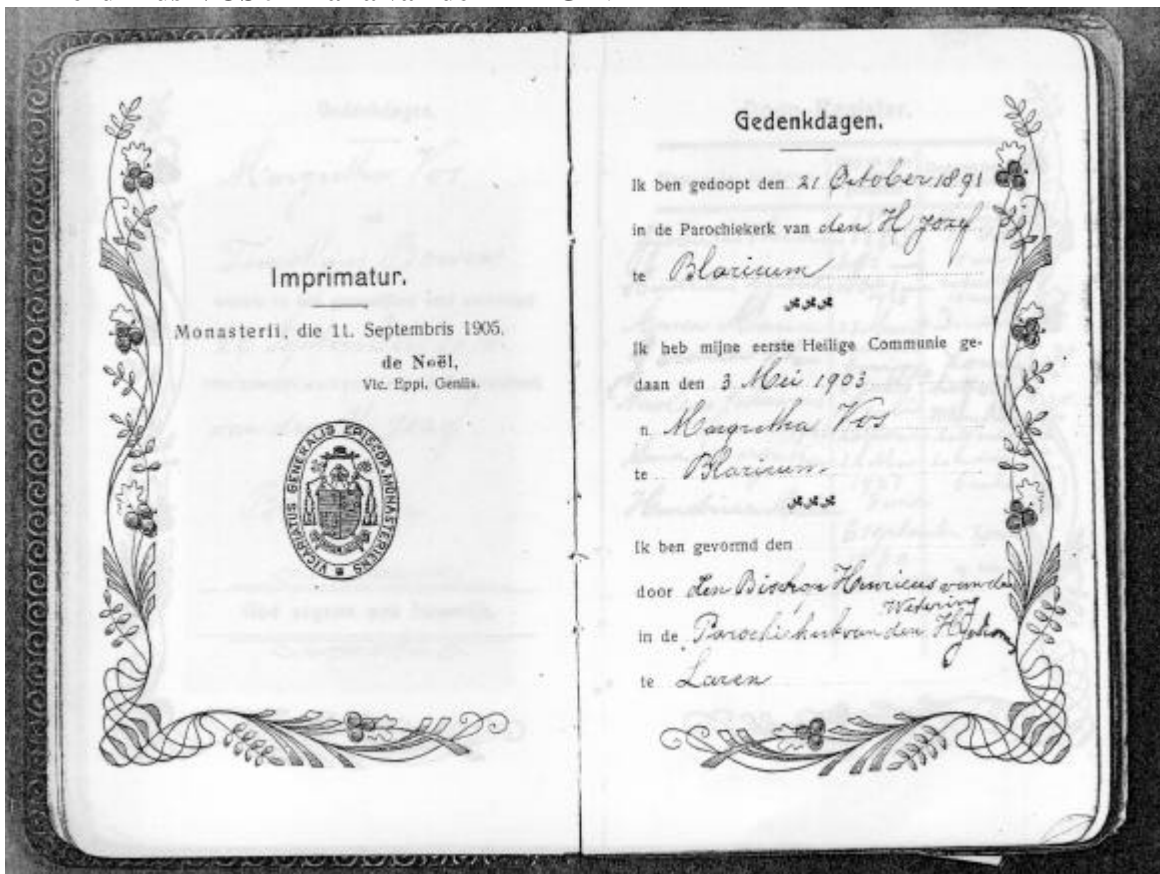 Imprimatur.
Monasterii, die 11. Septembris 1905.
de Noël,
Vic. Eppi. Genlis.
VICARIATUS GENERALIS EPISCOP. MONASTERIENS
Gedenkdagen.
Ik ben gedoopt den 21 October 1891
in de Parochiekerk van den H Jozef
te Blaricum
Ik heb mijne eerste Heilige Communie ge-
daan den 3 Mei 1903
n Margretha Vos
te Blaricum
Ik ben gevormd den
door den Bischop Henricus van de
Wetering
in de Parochiekerk van den H
te Laren